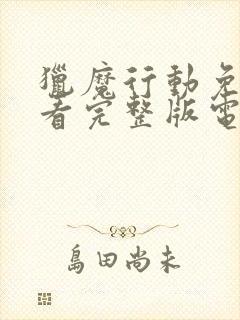 獵魔行動免
看完整版電
島田尚未